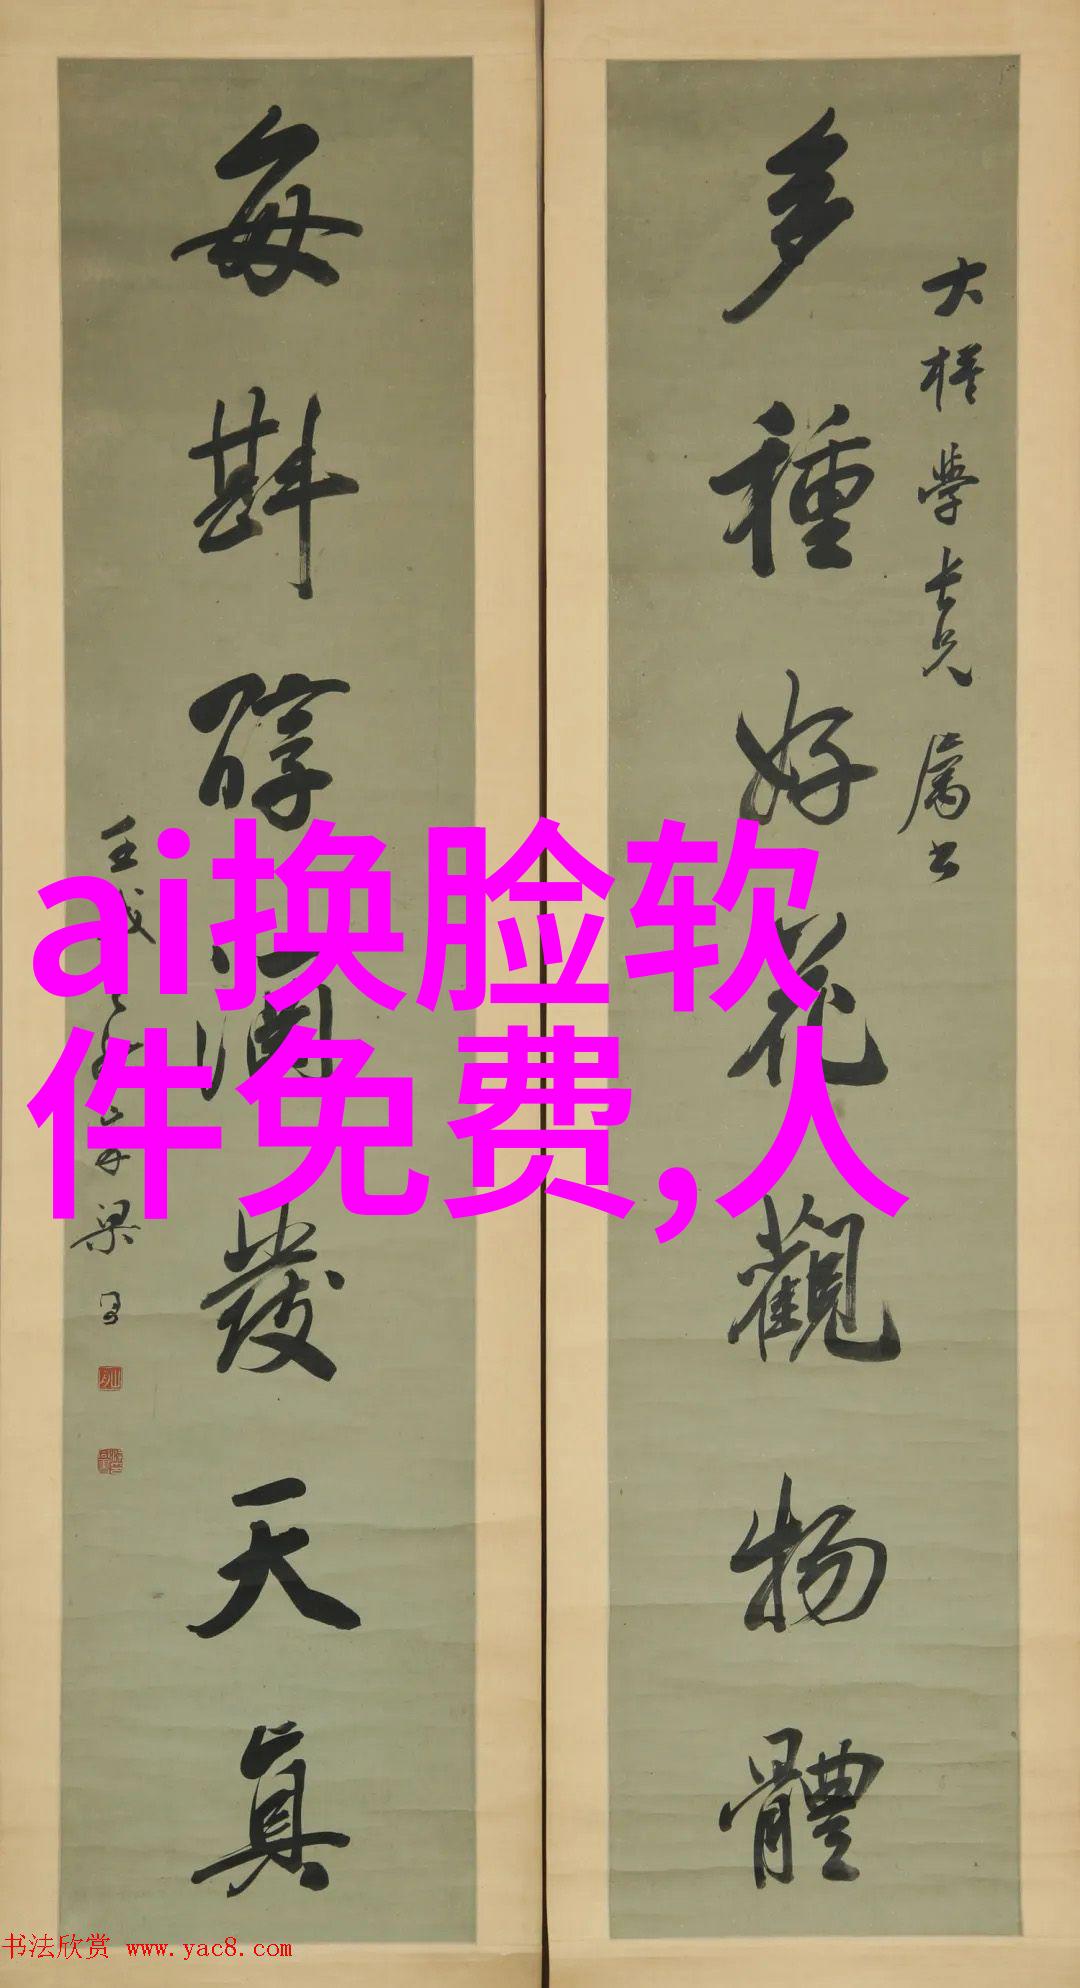 多種好花觀物體
大樣學長兄屬書
每斟醇酒發天真
ai换脸软
件免费,人
书法欣赏 www.yac8.com